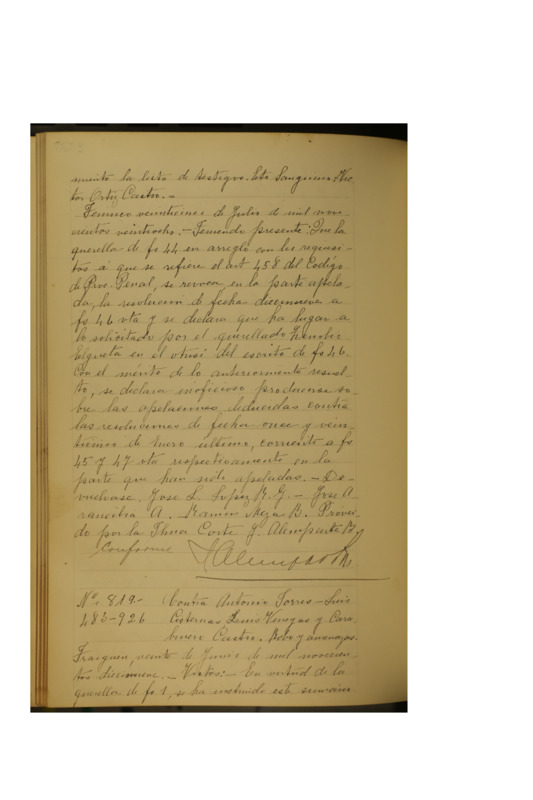 miento la lista de testigos. Eto Sanguesa. Víc-
tor Ortiz Castro.=
Temuco veinticinco de Julio de mil nove-
cientos veintiocho.- Teniendo presente: Que la
querella de fs 44 en arreglo con los requisi-
tos á que se refiere el art 458 del Codigo
de Proc. Penal, se revoca, en la parte apela-
da, la resolucion de fecha diecinueve a
fs 46 vta y se declara que ha lugar a
lo solicitado por el querellado
Elgueta en el otrosi del escrito de fs 46.
Con el merito de lo anteriormente resuel-
to, se declara inoficioso producirse so-
bre las apelaciones deducidas contra
las resoluciones de fecha once y vein-
ticinco de Enero último, corriente a fs
45 y 47 vta respectivamente en la
parte que han sido apeladas.- De-
vuelvase. Jose L. Lopez R. G.- Jose A-
rancibia A. Ramon Meza B. Provei-
do por la Iltma Corte J. Alemparte R
Conforme JAlemparte R.
No. 819.- Contra Antonio Torres - Luis
486-926 Cisternas Luis Venegas y Cara-
binero Castro. Robo y amenazas.
Traiguen, veinte de Junio de mil novecien-
tos diecinueve. - Vistos:- En virtud de la
querella de fs 1, se ha instruido este sumario